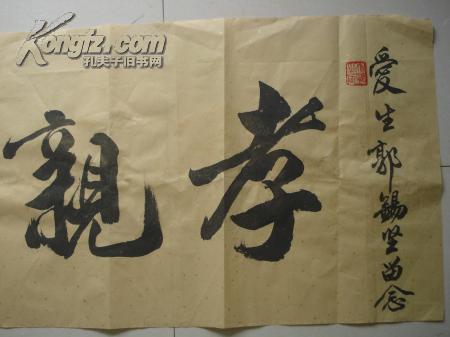 愛生郭錫堅留念
孝親
Kongfz.com
孔夫子旧书网